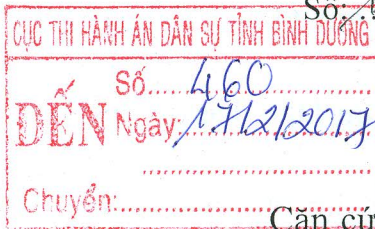 Số:
CỤC THI HÀNH ÁN DÂN SỰ TỈNH BÌNH DƯƠNG
Số 460
ĐẾN Ngày: 17/2/2017
Chuyển:
Căn cứ